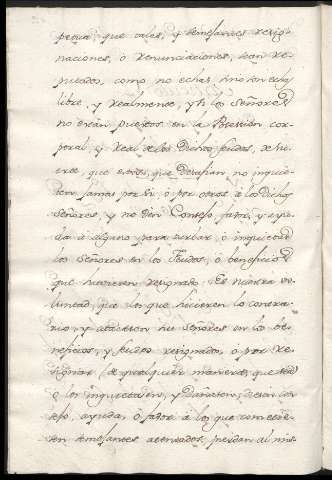 que tales, y semejantes resig-
naciones, o renunciaciones, sean re-
putadas, como no echas, sino son echas
libre, y realmente, y si los Señores
no serán puestos en la Posession cor-
poral, y Real de los Dichos feudos, de suer-
te que estos, que desafian, no inquie-
ten jamas por si, o por otros a los Dichos
Señores, y no den Consejo, fabor, y ayu-
da a alguno para turbar, o inquietar
los Señores en los Feudos, o beneficios
que huvieren resignado. Es nuestra vo-
luntad, que los que hicieren lo contra-
rio, y a sus Señores en los be-
neficios, y feudos resignados, o por re-
signar (de qualquier manera que sea)
o los inquietasen, y dañasen, dieren con-
sejo, ayuda, o fabor a los que cometie-
ren semejantes atentados, pierdan al mis-